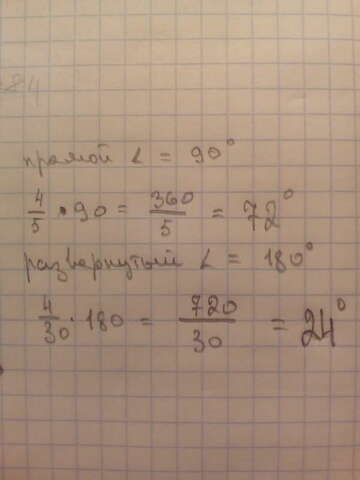 84
прямой ∠ = 90°
4/5 · 90 = 360/5 = 72°
развернутый ∠ = 180°
4/30 · 180 = 720/30 = 24°